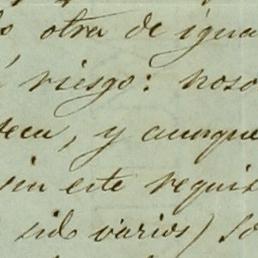 otra de igua
riesgo: noso
teca, y aunque
sin este requis
sido varios) so